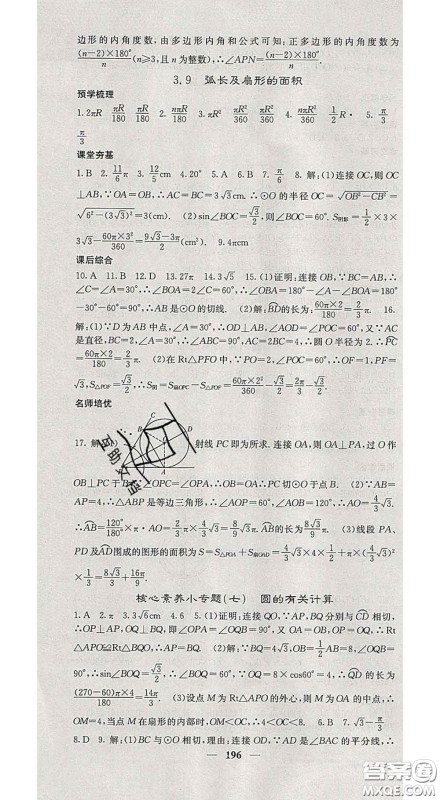 边形的内角度数,由多边形内角和公式可知:正多边形的内角度数为
(n-2)×180°/n (n≥3,且n为整数),∴∠APN=(n-2)×180°/n.
3.9 弧长及扇形的面积
预学梳理
1.2πR πR/180 πR/180 nπR/180 2.πR² πR²/360 πR²/360 nπR²/360 1/2R· 5.π/3
π/3
课堂夯基
1.B 2.11/6π 3.12/5cm 4.20° 5.A 6.B 7.B 8.解:(1)连接OC,则OC
⊥AB,∵OA=OB,∴AC=BC=3√3cm.∴⊙O的半径OC=√(OB²-CB²)=
√(6²-(3√3)²)=3(cm). (2)sin∠BOC=√3/2,∴∠BOC=60°.S阴影=1/2×3×
3√3-60π×3²/360=(9√3-3π)/2(cm²). 9.4πcm
课后综合
10.A 11.B 12.D 13.27π 14.3√5 15.(1)证明:连接OB,∵BC=AB,∴
∠C=∠A=30°,∴∠BOA=2∠C=60°,∴∠OBA=180°-∠A-∠BOA=180°
-30°-60°=90°.∴AB是⊙O的切线. (2)解:BD的长为:60π×2/180=2/3π. 16.
解:(1)∵D为AB中点,∠A=30°,∴OD⊥AB,∠AOF=∠POC=60°,又∵AC
是直径,BC=2,∠A=30°,∴∠ABC=90°,AC=2BC=4,∴圆O半径为2.PC
=60π×2/180=2/3π. (2)在Rt△PFO中,∵∠POC=60°,OP=2,∴OF=1,PF=
√3,S△POF=√3/2,∴S阴=S扇OPC-S△POF=60π×2²/360-√3/2=2/3π-√3/2.
名师培优
17.解 射线PC即为所求.连接OA,则OA⊥PA,过O作
OB⊥PC于B ∠OPC=∠OPA,∴OB=OA,即PC切⊙O于点B. (2)∵AB=
AP=4,∴△ABP是等边三角形,∴∠APB=60°,∴∠OPA=30°,∴OA=4/3
√3.∴AB=120°/180°×π·AO=2/3π×4/3√3=8√3/9π.∴AB的长为8√3/9π. (3)线段PA、
PD及AD围成的图形的面积为S=S△POA+S扇AOD=4/3√3×4×1/2+4/3√3×2/3π×
4/3√3×1/2=8√3/3+16π/9.
核心素养小专题(七) 圆的有关计算
1.A 2.π 3.3√6cm 4.6 5.(1)证明:连接QO,∵AP、BQ分别与CD相切,
∴OP⊥AP,OQ⊥BQ,即∠OPA=∠OQB=90°,又∵OA=OB,OP=OQ,∴Rt
△APO≌Rt△BQO,∴AP=BQ. (2)解:∵BQ=4√3,OB=1/2AB=8,∠BQO
=90°,∴sin∠BOQ=√3/2,∴∠BOQ=60°,∵OQ=8×cos60°=4,∴QD的长为
(270-60)π×4/180=14π/3. (3)设点M为Rt△APO的外心,则M为OA的中点,∵OA=8,
∴OM=4,当点M在扇形的内部时,OM<OC,∴4<OC<8. 6.B2 7.π/3-√3/2
8.D 9.解:(1)BC与⊙O相切,理由:连接OD,∵AD是∠BAC的平分线,∴
196
互助文档
答案圈
MXQE.COM